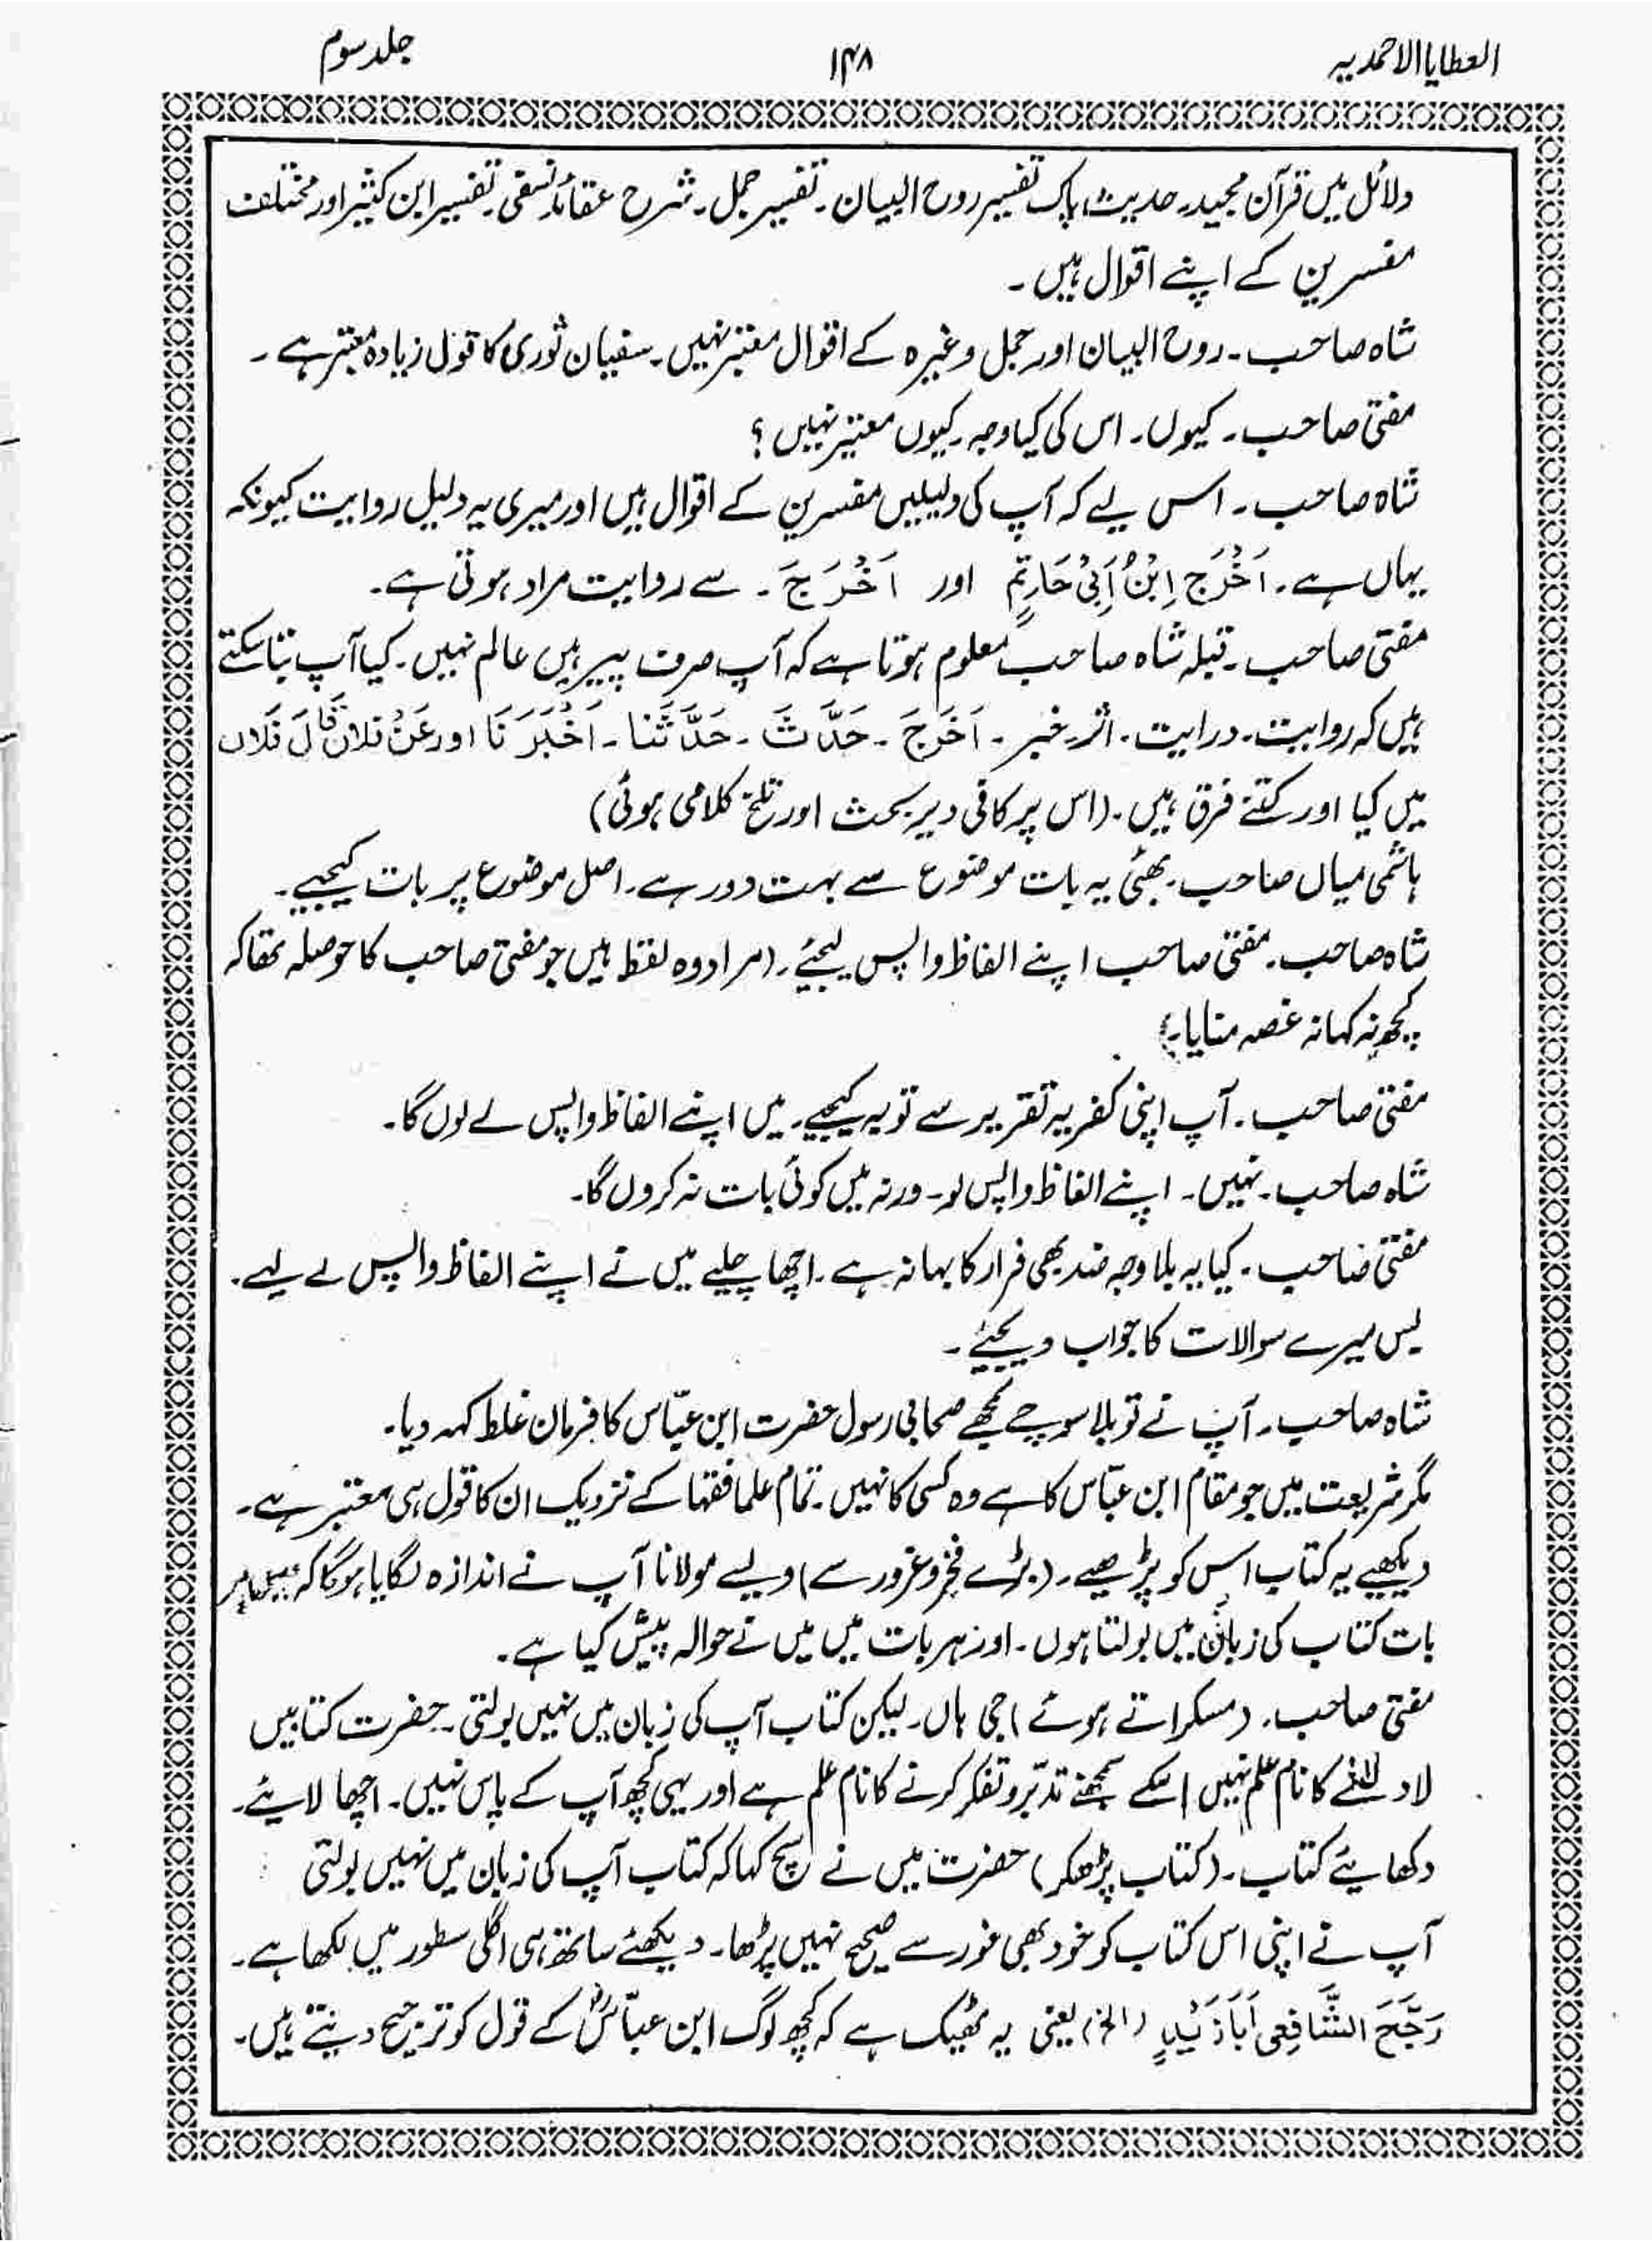 العطایا الاحمدیہ
۱۴۸
جلد سوم
دلائل میں قرآن مجید۔ حدیث پاک تفسیر روح البیان۔ تفسیر جمل۔ شرح عقائد نسفی۔ تفسیر ابن کثیر اور مختلف
مفسرین کے اپنے اقوال ہیں۔
شاہ صاحب۔ روح البیان اور جمل وغیرہ کے اقوال معتبر نہیں۔ سفیان ثوری کا قول زیادہ معتبر ہے۔
مفتی صاحب۔ کیوں۔ اس کی کیا وجہ۔ کیوں معتبر نہیں؟
شاہ صاحب۔ اس لیے کہ آپ کی دلیلیں مفسرین کے اقوال ہیں اور میری یہ دلیل روایت کیونکہ
یہاں ہے۔ اَخْرَجَ اِبْنُ اَبِیْ حَاتِمٍ اور اَخْرَجَ۔ سے روایت مراد ہوتی ہے۔
مفتی صاحب۔ قبلہ شاہ صاحب معلوم ہوتا ہے کہ آپ صرف پیر ہیں عالم نہیں۔ کیا آپ بتا سکتے
ہیں کہ روایت۔ درایت۔ اثر۔ خبر۔ اَخَرَجَ۔ حَدَّثَ۔ حَدَّثَنا۔ اَخْبَرَنَا اور عَنْ فلان قَالَ فَلَاں
میں کیا اور کتنے فرق ہیں۔ (اس پر کافی دیر بحث اور تلخ کلامی ہوئی)
ہاشمی میاں صاحب۔ بھئی یہ بات موضوع سے بہت دور ہے۔ اصل موضوع پر بات کیجیے۔
شاہ صاحب۔ مفتی صاحب اپنے الفاظ واپس لیجئے۔ (مراد وہ لفظ ہیں جو مفتی صاحب کا حوصلہ تھا کہ
کچھ نہ کہا نہ غصہ منایا۔)
مفتی صاحب۔ آپ اپنی کفریہ تقریر سے توبہ کیجیے۔ میں اپنے الفاظ واپس لے لوں گا۔
شاہ صاحب۔ نہیں۔ اپنے الفاظ واپس لو۔ ورنہ میں کوئی بات نہ کروں گا۔
مفتی صاحب۔ کیا یہ بلا وجہ ضد بھی فرار کا بہانہ ہے۔ اچھا چلیے میں نے اپنے الفاظ واپس لے لیے۔
بس میرے سوالات کا جواب دیجئے۔
شاہ صاحب۔ آپ نے تو بلا سوچے سمجھے صحابی رسول حضرت ابن عبّاس کا فرمان غلط کہہ دیا۔
مگر شریعت میں جو مقام ابن عبّاس کا ہے وہ کسی کا نہیں۔ تمام علما فقہا کے نزدیک ان کا قول ہی معتبر ہے۔
دیکھیے یہ کتاب اس کو پڑھیے۔ (بڑے فخر و غرور سے) ویسے مولانا آپ نے اندازہ لگایا ہوگا کہ میں ہر
بات کتاب کی زبان میں بولتا ہوں۔ اور ہر بات میں میں نے حوالہ پیش کیا ہے۔
مفتی صاحب۔ (مسکراتے ہوئے) جی ہاں۔ لیکن کتاب آپ کی زبان میں نہیں بولتی۔ حضرت کتابیں
لاد لانے کا نام علم نہیں اسکے سمجھنے تدبّر و تفکر کرنے کا نام علم ہے اور یہی کچھ آپ کے پاس نہیں۔ اچھا لایئے۔
دکھایئے کتاب۔ (کتاب پڑھکر) حضرت میں نے سچ کہا کہ کتاب آپ کی زبان میں نہیں بولتی
آپ نے اپنی اس کتاب کو خود بھی غور سے صحیح نہیں پڑھا۔ دیکھئے ساتھ ہی اگلی سطور میں لکھا ہے۔
رَجَّحَ الشَّافِعِی اَبَازَیْدٍ (الخ) یعنی یہ ٹھیک ہے کہ کچھ لوگ ابن عبّاسؓ کے قول کو ترجیح دیتے ہیں۔